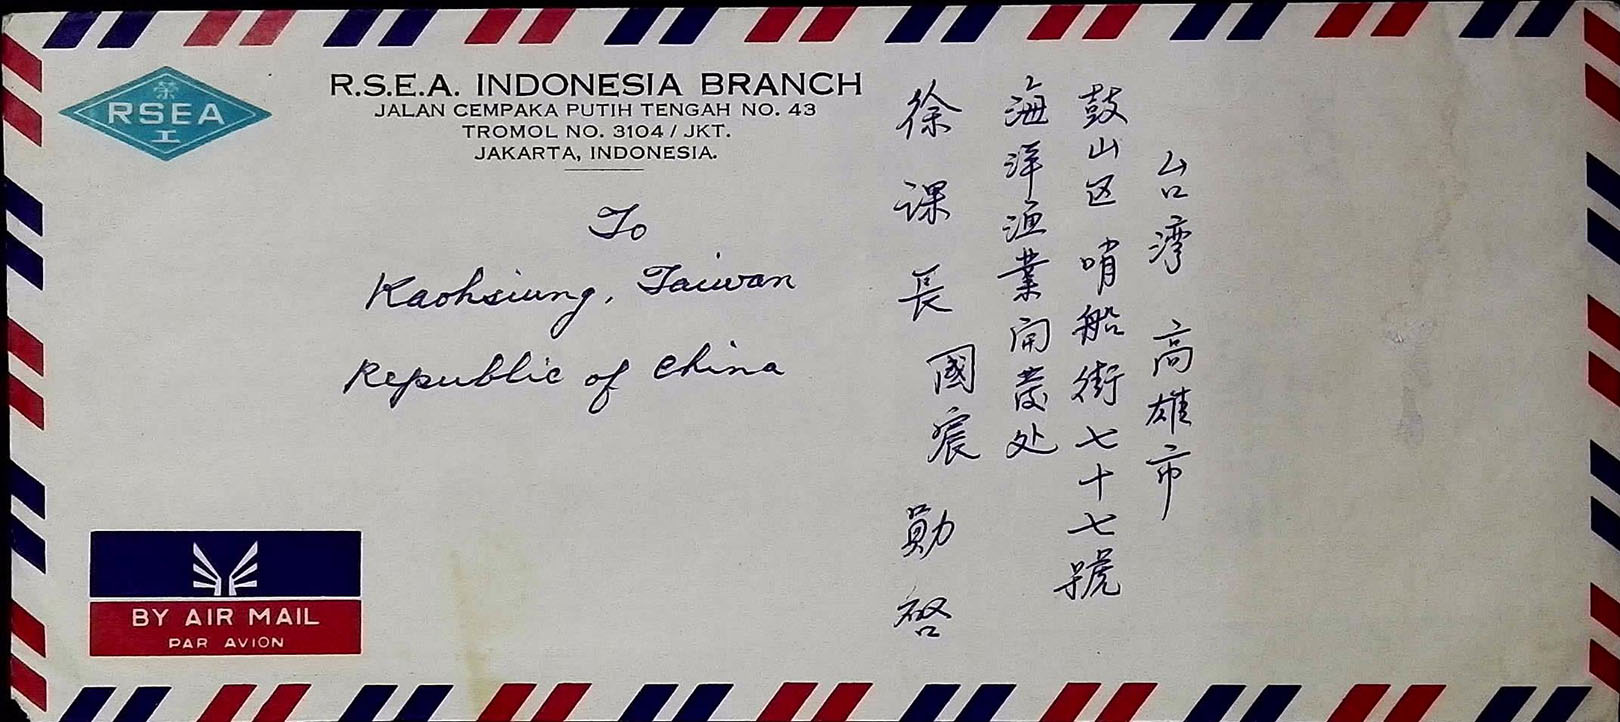 榮
RSEA
工
R.S.E.A. INDONESIA BRANCH
JALAN CEMPAKA PUTIH TENGAH NO. 43
TROMOL NO. 3104 / JKT.
JAKARTA, INDONESIA.
To
Kaohsiung, Taiwan
Republic of China
台湾 高雄市
鼓山区 哨船街七十七號
海洋渔業開發处
徐課長國宸勛啓
BY AIR MAIL
PAR AVION